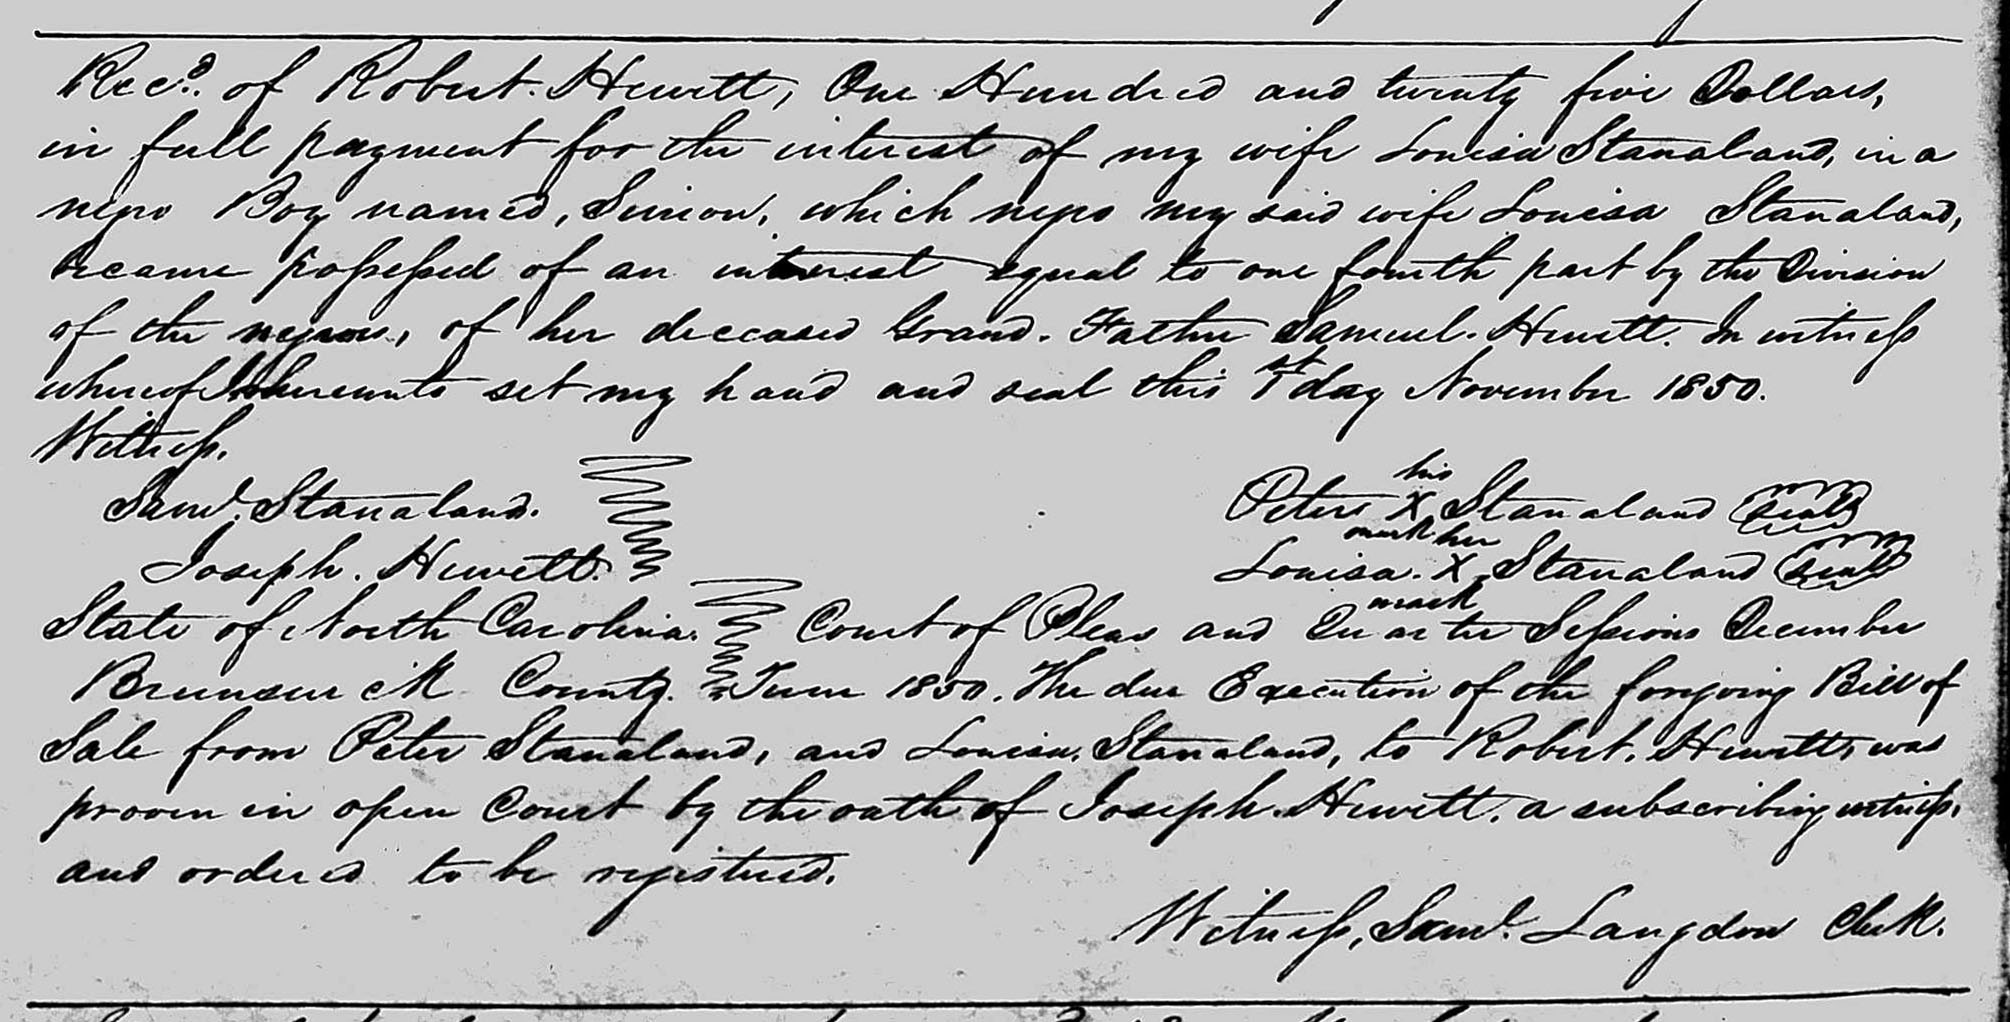 Rec.d of Robert. Hewett, One Hundred and twenty five Dollars,
in full payment for the interest of my wife Louisa Stanaland, in a
negro Boy named, Simon, which negro my said wife Louisa Stanaland,
became possessed of an interest equal to one fourth part by the Division
of the negroes, of her deceased Grand. Father Samuel. Hewett. In witness
whereof I hereunto set my hand and seal this 1st day November 1850.
Witness.
his
Saml. Stanaland. Peter X Stanaland (seal)
mark her
Joseph. Hewett. Louisa. X Stanaland (seal)
mark
State of North Carolina. Court of Pleas and Quarter Sessions December
Brunswick County. Term 1850. The due Execution of the foregoing Bill of
Sale from Peter Stanaland, and Louisa. Stanaland, to Robert. Hewett, was
proven in open Court by the oath of Joseph. Hewett. a subscribing witness.
and ordered to be registered.
Witness, Saml. Langdon Clerk.